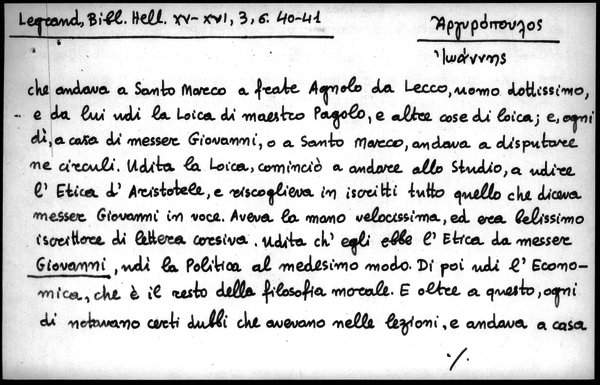 Legrand, Bibl. Hell. XV-XVI, 3, 6. 40-41
Ἀργυρόπουλος
Ἰωάννης
che andava a Santo Marco a frate Agnolo da Lecco, uomo dottissimo,
e da lui udì la Loica di maestro Pagolo, e altre cose di loica; e, ogni
dì, a casa di messer Giovanni, o a Santo Marco, andava a disputare
ne circuli. Udita la Loica, cominciò a andare allo Studio, a udire
l' Etica d' Aristotele, e riscoglieva in iscritti tutto quello che diceva
messer Giovanni in voce. Aveva la mano velocissima, ed era belissimo
iscrittore di lettera corsiva. Udita ch' egli ebbe l' Etica da messer
Giovanni, udì la Politica al medesimo modo. Di poi udì l' Econo-
mica, che è il resto della filosofia morale. E oltre a questo, ogni
dì notavano certi dubbi che avevano nelle lezioni, e andava a casa
·/.